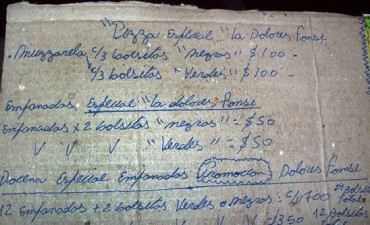 "Pizza Especial "La Dolores Fonsi"
. Muzzarela c/3 bolsitas "negras" $100 -
c/3 bolsitas "Verdes" $100 -
Empanadas Especial "La dolores Fonsi
Empanadas x 2 bolsitas "negras" = $50
V V V "Verdes" = $50
Docena Especial Empanadas Promocion Dolores Fonsi
12 Empanadas + 2 bolsitas Verdes o negras = 700 Bolsitas Total
V V V = $350 12 Bolsitas